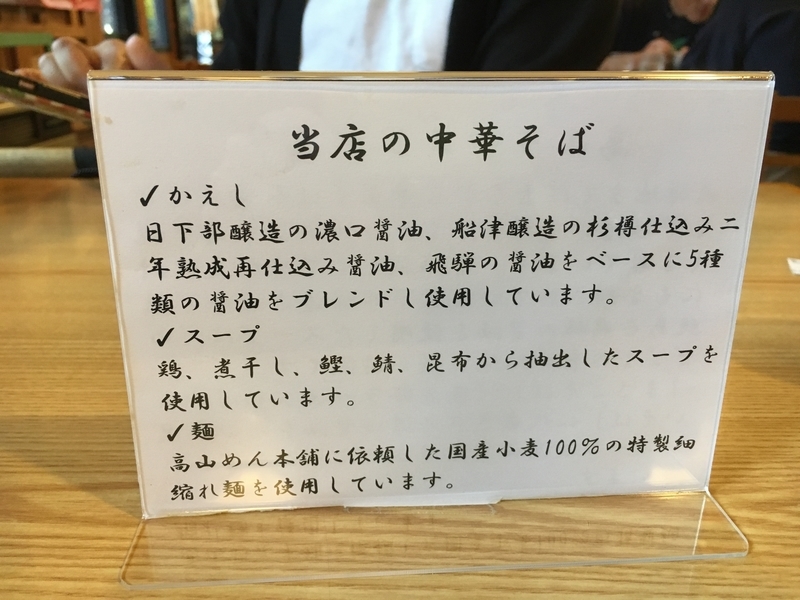 当店の中華そば
✓かえし
日下部醸造の濃口醤油、船津醸造の杉樽仕込み二
年熟成再仕込み醤油、飛騨の醤油をベースに5種
類の醤油をブレンドし使用しています。
✓スープ
鶏、煮干し、鰹、鯖、昆布から抽出したスープを
使用しています。
✓麺
高山めん本舗に依頼した国産小麦100%の特製細
縮れ麺を使用しています。